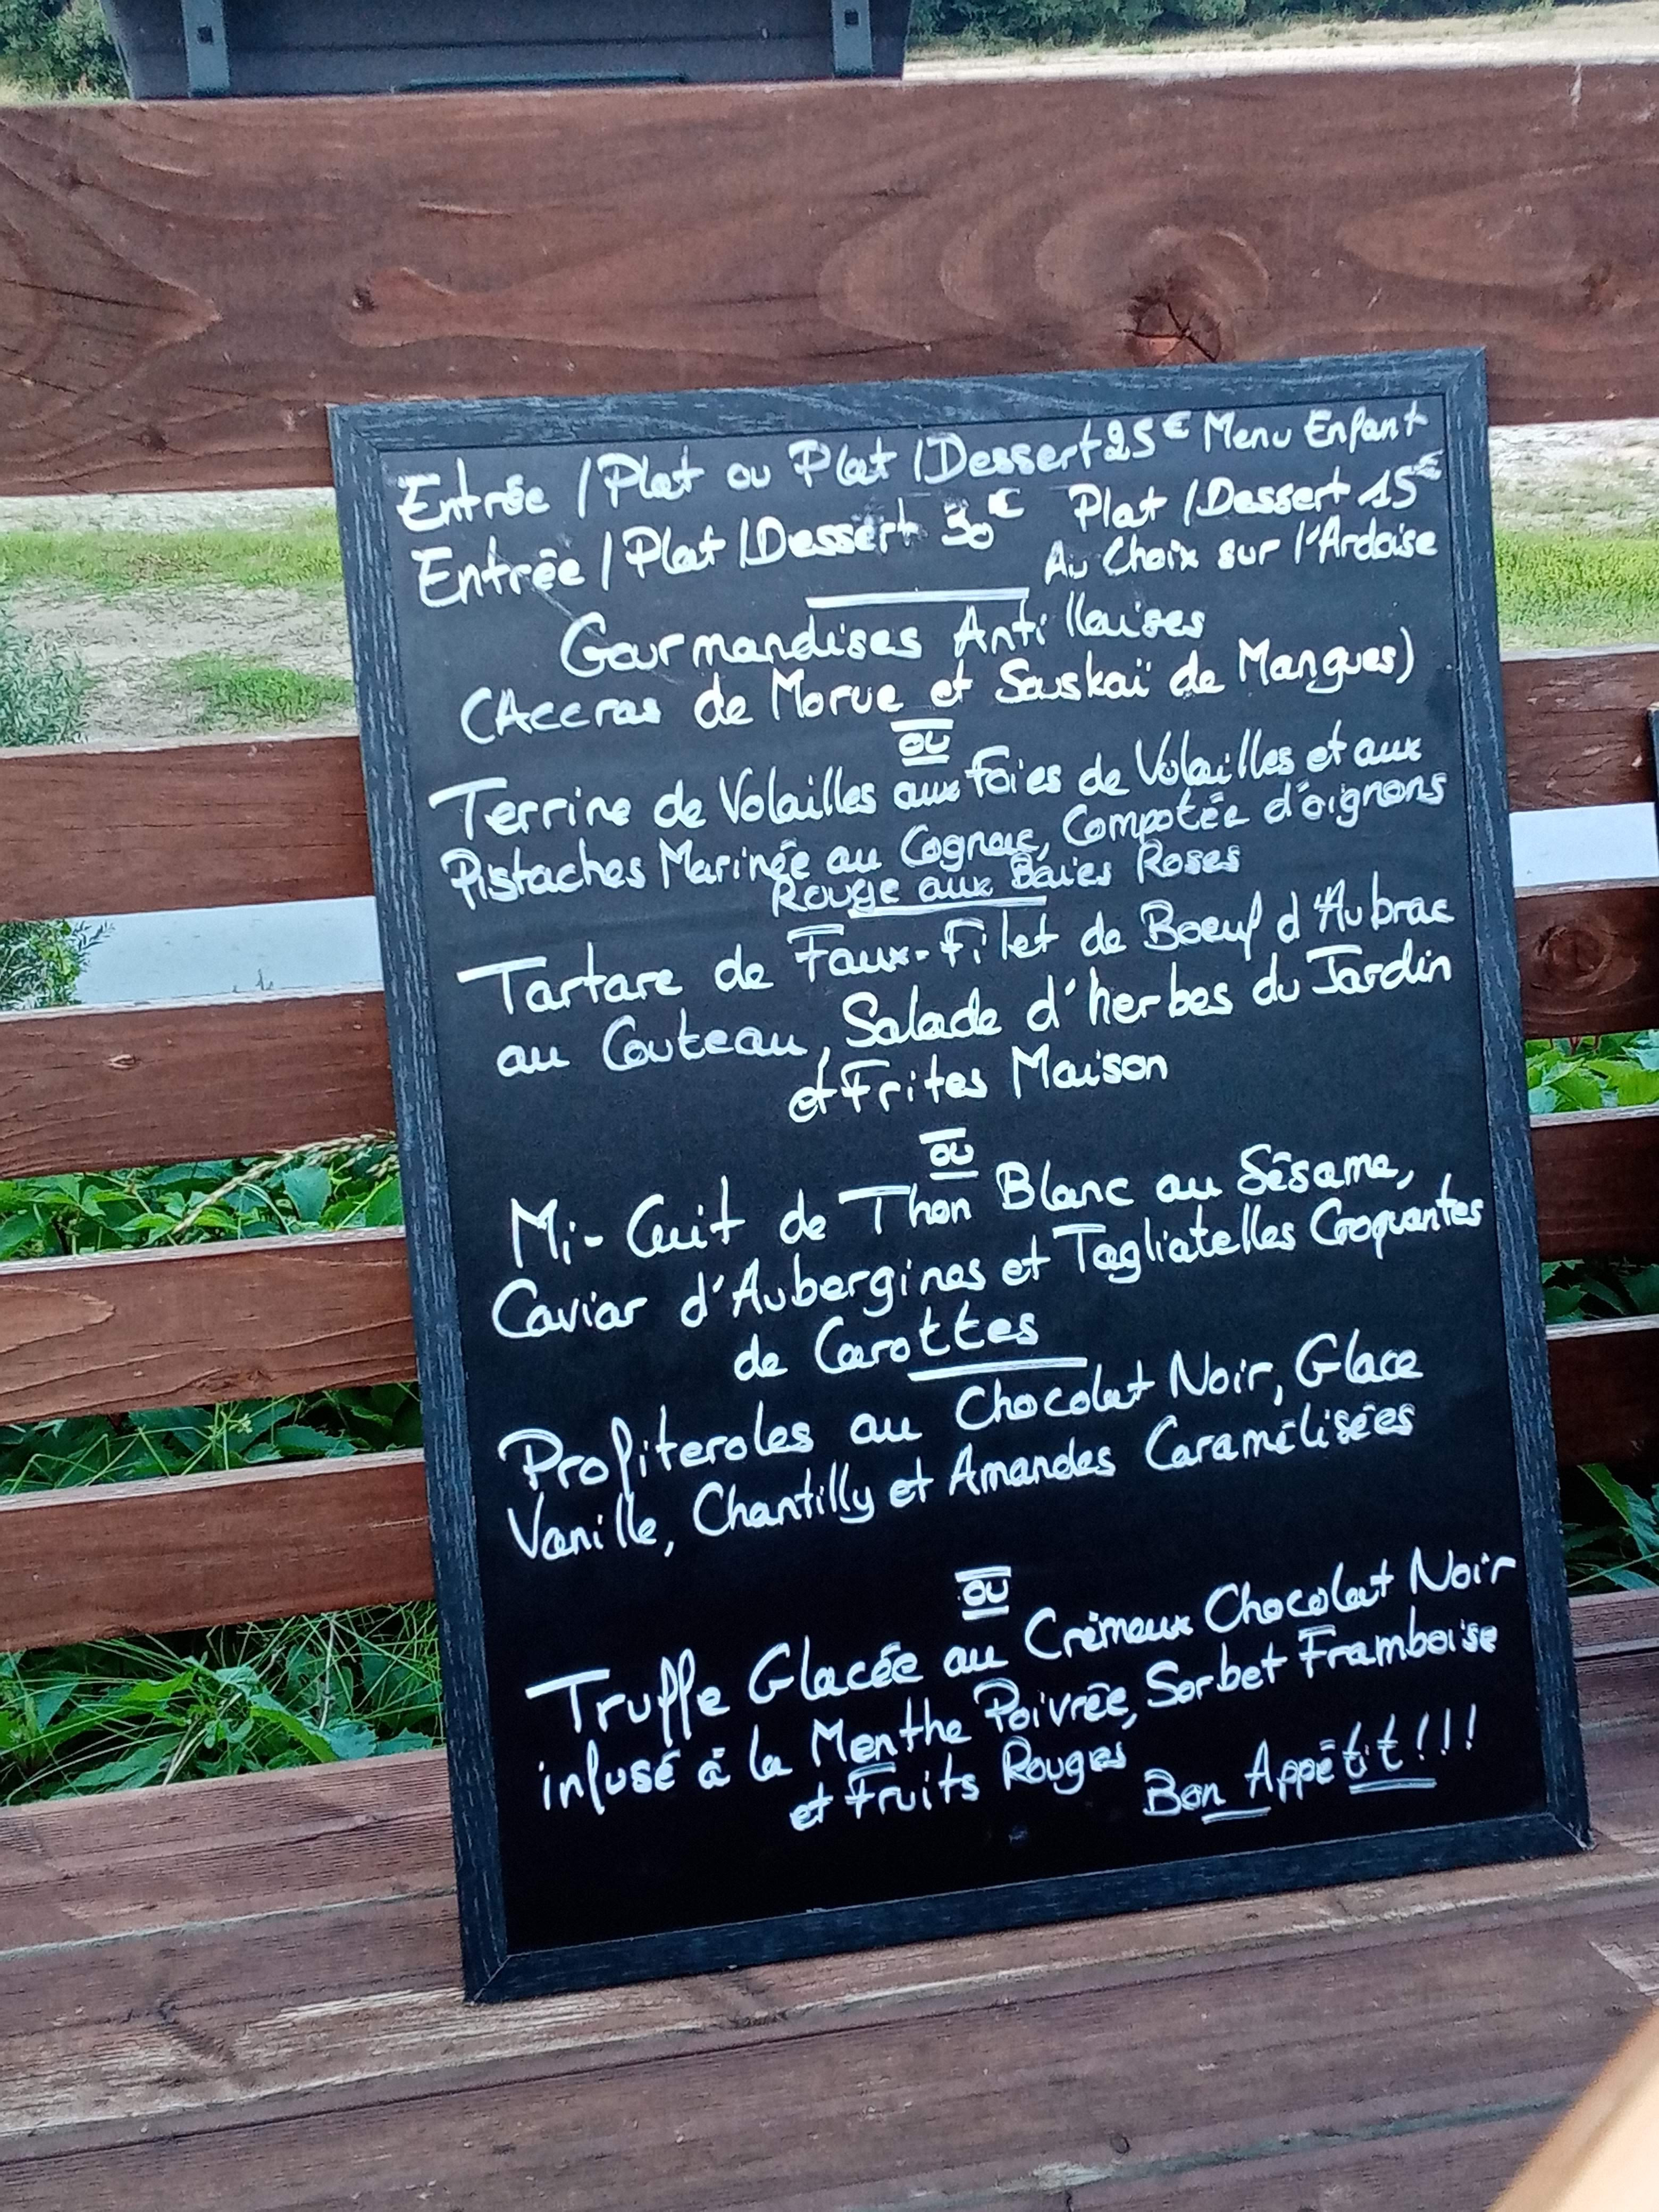 Entrée / Plat ou Plat / Dessert 25€ Menu Enfant
Entrée / Plat / Dessert 30€ Plat / Dessert 15€
Au Choix sur l'Ardoise
Gourmandises Antillaises
(Accras de Morue et Souskaï de Mangues)
ou
Terrine de Volailles aux Foies de Volailles et aux
Pistaches Marinée au Cognac, Compotée d'oignons
Rouge aux Baies Roses
Tartare de Faux-Filet de Boeuf d'Aubrac
au Couteau, Salade d'herbes du Jardin
et Frites Maison
ou
Mi-Cuit de Thon Blanc au Sésame,
Caviar d'Aubergines et Tagliatelles Croquantes
de Carottes
Profiteroles au Chocolat Noir, Glace
Vanille, Chantilly et Amandes Caramélisées
ou
Truffe Glacée au Crémeux Chocolat Noir
infusé à la Menthe Poivrée, Sorbet Framboise
et Fruits Rouges
Bon Appétit!!!